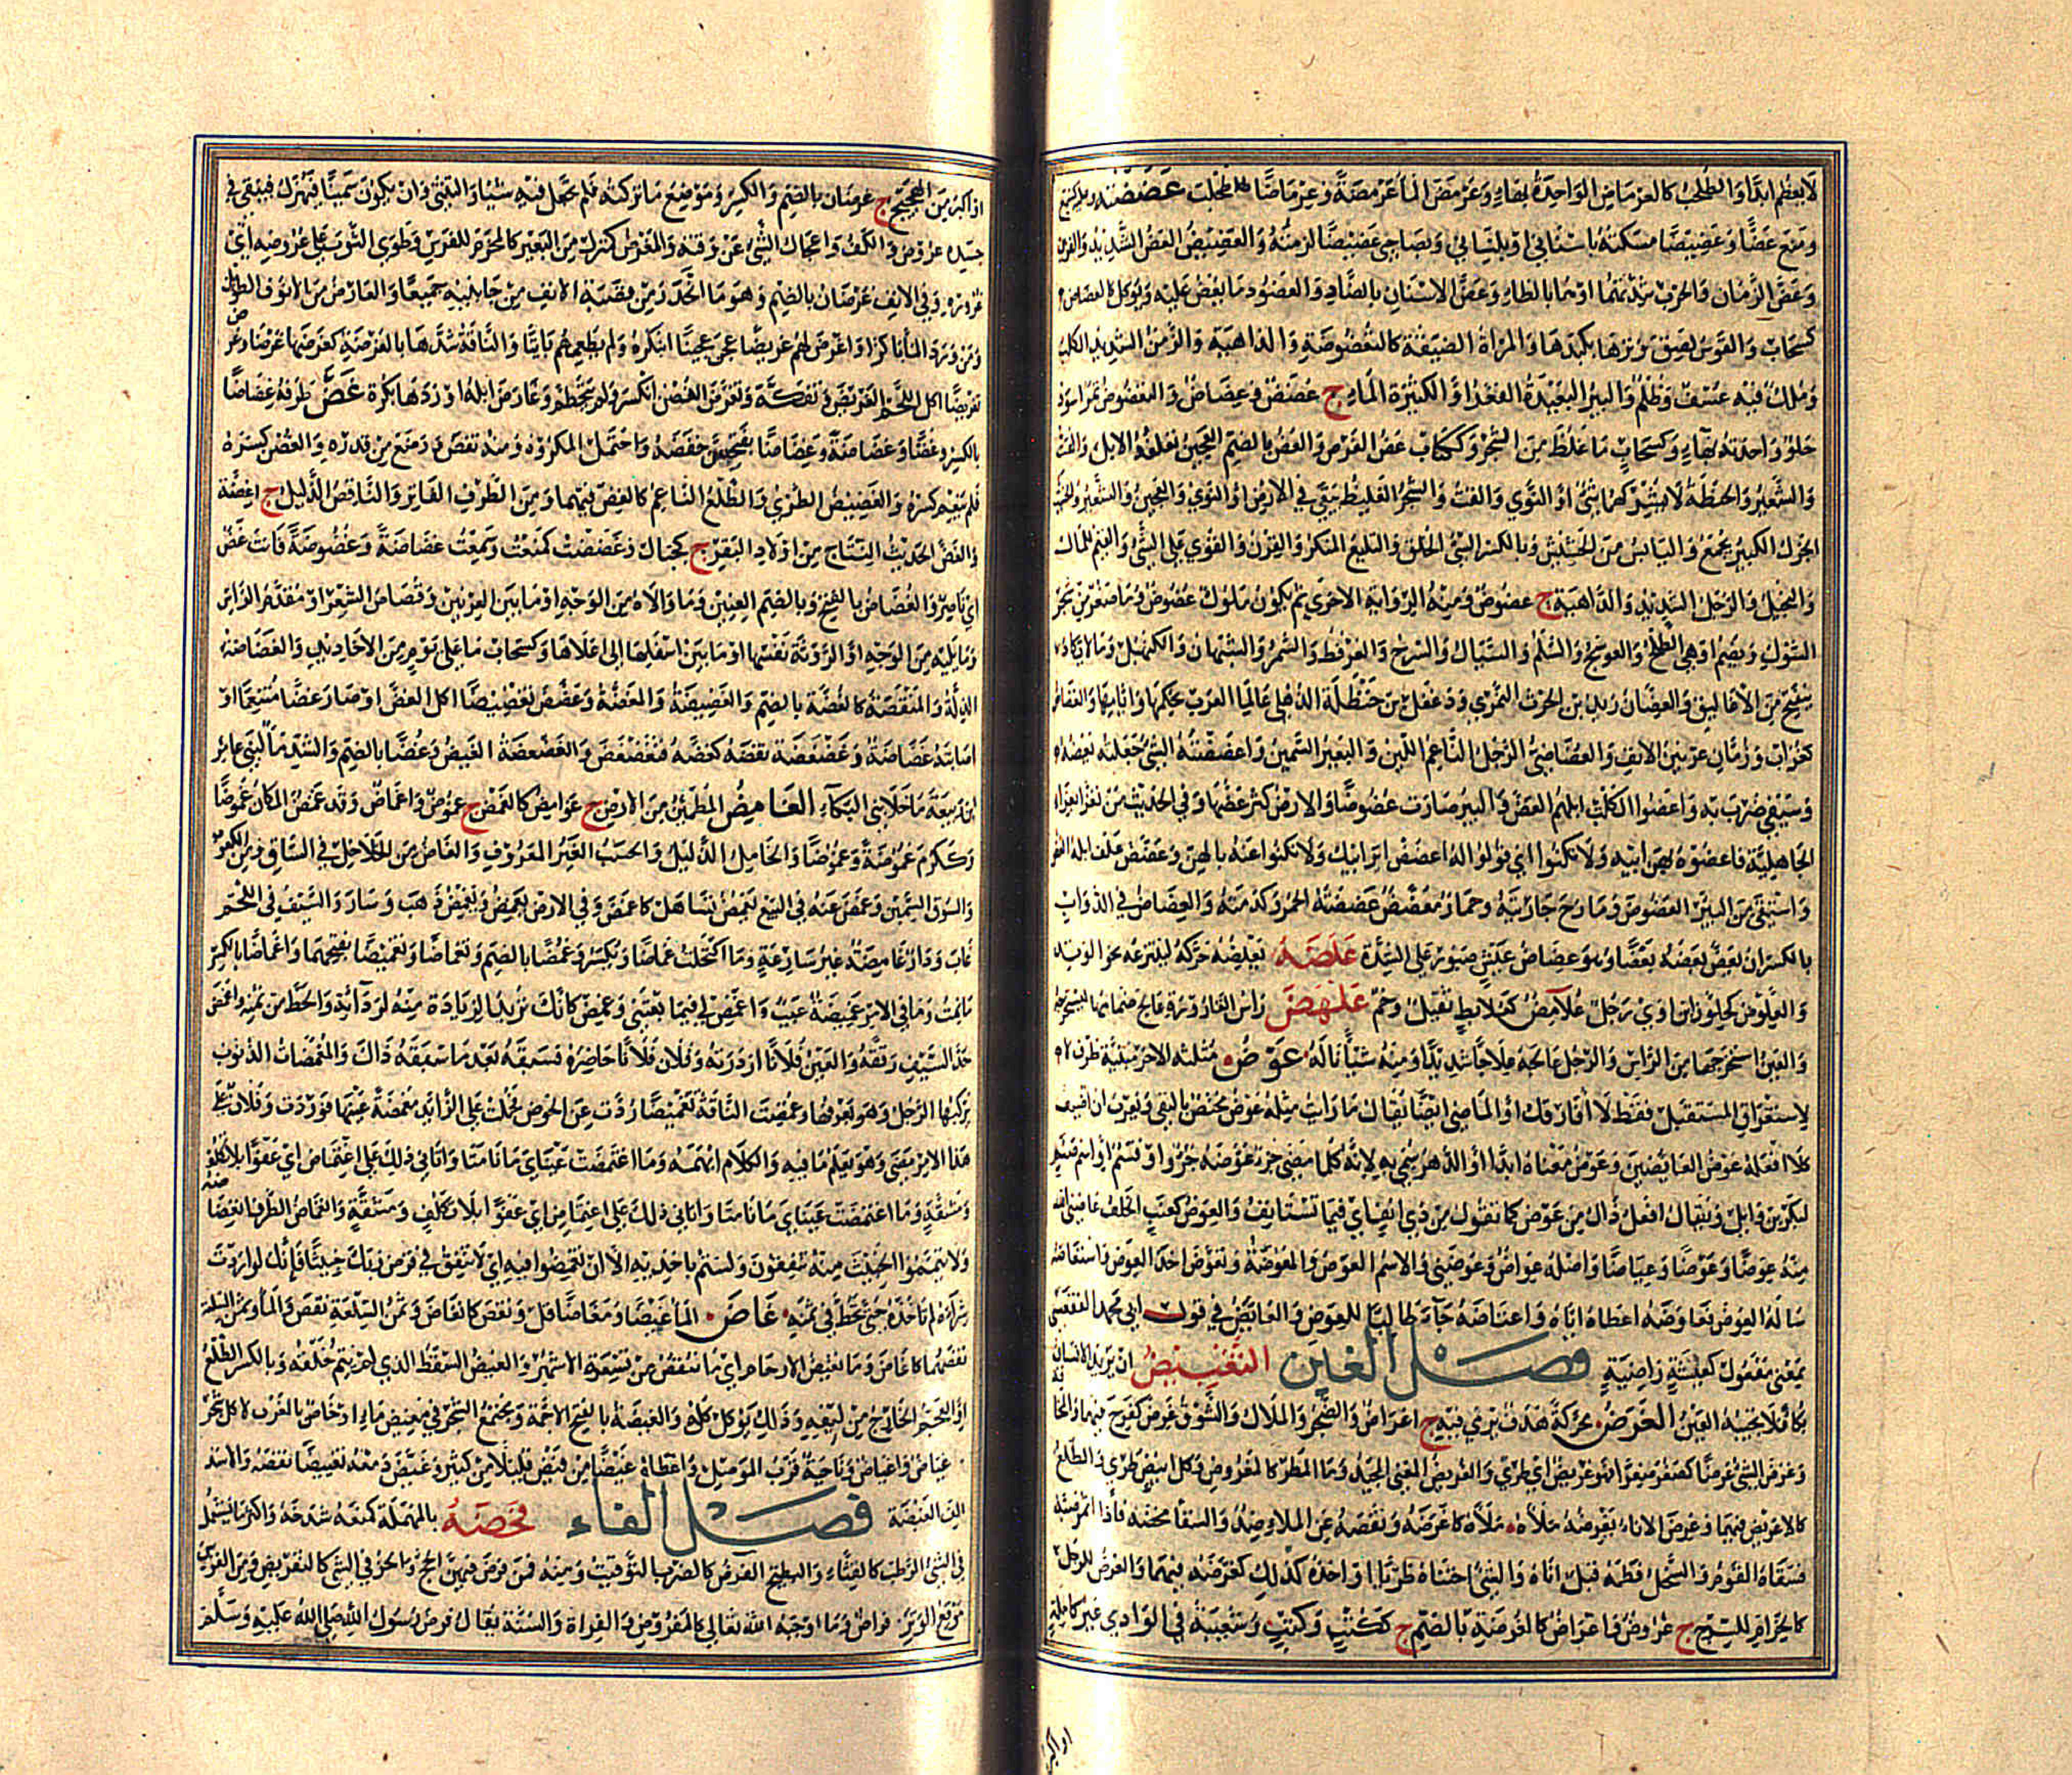 لا يعظم ابدا والطحلب كالعرماض الواحدة بهاء وعرمض الماء عرمضة وعرماضا طحلب عضضته
ومنع عضا وعضيضا مسكته باسناني او بلساني وبصاحبي عضيضا لزمته والعضيض العض الشديد والقرين
وعض الزمان والحرب شدتهما او هما بالظاء وعض الاسنان بالضاد والعضوض ما يعض عليه ويؤكل كالعضاض
كسحاب والقوس لصق وترها بكبدها والمرأة الضيقة كالتعضوضة والداهية والزمن الشديد الكلب
وملك فيه عسف وظلم والبئر البعيدة القعر او الكثيرة الماء ج عضض وعضاض والتعضوض تمر اسود
حلو واحدته بهاء وكسحاب ما غلظ من الشجر وككتاب عض الفرس والعض بالضم العجين تعلفه الابل والقت
والشعير والحنطة لا يشركهما شيء او النوى والقت والشجر الغليظ يبقى في الارض او النوى والعجين والشعير
الجزل الكبير يجمع واليابس من الحشيش وبالكسر السيئ الخلق والبليغ المنكر والقرن والقوي على الشيء والقيم للمال
والبخيل والرجل الشديد والداهية ج عضوض ومنه الرواية الاخرى ثم يكون ملوك عضوض وما صغر من شجر
الشوك ويضم او هي الطلح والعوسج والسلم والسيال والسرح والعرفط والسمر والشبهان والكنهبل وما لا يكاد
ينفتح من الاغاليق والعضان زيد بن الحرث النمري ودغفل بن حنظلة الذهلي عالما العرب بحكمها وايامها والعضاض
كغراب ورمان عرنين الانف والعضاضي الرجل الناعم اللين والبعير السمين واعضضته الشيء جعلته يعضه
وسيفي ضربه به واعضوا اكلت ابلهم العض والبئر صارت عضوضا والارض كثر عضها وفي الحديث من تعزى بعزاء
الجاهلية فاعضوه بهن ابيه ولا تكنوا اي قولوا له اعضض اير ابيك ولا تكنوا عنه بالهن وعضض علف ابله العض
واستقى من البئر العضوض ومازح جاريته وحمار معضض عضضته الحمر وكدمته والعضاض في الدواب
بالكسر ان يعض بعضه بعضا وهو عضاض عيش صبور على الشدة علضه يعلضه حركه لينتزعه نحو الوتد
والعلوض كجلوز ابن اوى رجل علامض كعلابط ثقيل وخم علهض راس القارورة عالج صمامها ليستخرجه
والعين استخرجها من الراس والرجل عالجه علاجا شديدا ومنه شيئا ناله عوض مثلثة الاخر مبنية ظرف
لاستغراق المستقبل فقط لا افارقك او الماضي ايضا يقال ما رايت مثله عوض مختص بالنفي ويعرب ان اضيف
كلا افعله عوض العائضين وعوض معناه ابدا او الدهر سمي به لانه كلما مضى جزء عوضه جزء او قسم او اسم صنم
لبكر بن وائل ويقال افعل ذاك من عوض كما تقول من ذي انف اي فيما تستانف والعوض كعنب الخلف عاضني الله
منه عوضا وعوضا وعياضا واصله عواض وعوضني والاسم العوض والمعوضة وتعوض اخذ العوض واستعاضه
ساله العوض فعاوضه اعطاه اياه واعتاضه جاءه طالبا للعوض والعائض في قول ابي محمد الفقعسي
بمعنى مفعول كعيشة راضية فصل الغين التغبيض ان يريد الانسان
بكاء فلا تجيبه العين الغرض محركة هدف يرمى فيه ج اغراض والضجر والملال والشوق غرض كفرح فيهما والمخافة
وغرض الشيء غرضا كصغر صغرا فهو غريض اي طري والغريض المغني المجيد وماء المطر كالمغروض وكل ابيض طري والطلع
كالاغريض فيهما وغرض الاناء يغرضه ملأه كاغرضه ونقصه عن الملء ضد والسقاء مخضه فاذا اثمر صبه
فسقاه القوم والسخل فطمه قبل اناه والشيء اجتناه طريا او اخذه كذلك كغرضه فيهما والغرض للرحل
كالحزام للسرج ج غروض واغراض كالغرضة بالضم ج ككتب وكتب وشعبة في الوادي غير كاملة
او اكبر
او اكبر من الهجيج ج غرضان بالضم والكسر وموضع ما تركته فلم تجعل فيه شيئا والتثني وان يكون سمينا فيهزل فيبقى في
جسده غروض والكف واعجال الشيء عن وقته والمغرض كمنزل من البعير كالمحزم للفرس وطوى الثوب على غروضه اي
غروره وفي الانف غرضان بالضم وهو ما انحدر من قصبة الانف من جانبيه جميعا والغارض من الانوف الطويل
ومن ورد الماء باكرا واغرض لهم غريضا عجن عجينا ابتكره ولم يطعمهم بائتا والناقة شدها بالغرضة كغرضها غرضا وغرض
تغريضا اكل اللحم الغريض وتفكه وتغرض الغصن انكسر ولم يتحطم وغارض ابله اوردها بكرة غض طرفه غضاضا
بالكسر وغضا وغضاضة وغضاضا بفتحهن خفضه واحتمل المكروه ومنه نقص ووضع من قدره والغصن كسره
فلم ينعم كسره والغضيض الطري والطلع الناعم كالغض فيهما ومن الطرف الفاتر والناقص الذليل ج اغضة
والغض الحديث النتاج من اولاد البقر ج كجبال وغضضت كمنعت وسمعت غضاضة وغضوضة فانت غض
اي ناضر والغضاض بالفتح وبالضم العرنين وما والاه من الوجه او ما بين العرنين وقصاص الشعر او مقدم الراس
وما يليه من الوجه او الروثة نفسها او ما بين اسفلها الى اعلاها وكسحاب ماء على يوم من الاخاديد والغضاضة
الذلة والمنقصة كالغضة بالضم والغضيضة والمغضة وغضض تغضيضا اكل الغض او صار غضا متنعما او
اصابته غضاضة وغضغضة نقصه كغضه فتغضغض والغضغضة الغيض وغضا بالضم والشد ماء لبني عامر
بن ربيعة ما خلا بني البكاء الغامض المطمئن من الارض ج غوامض كالغمض ج غموض واغماض وقد غمض المكان غموضا
وككرم غموضة وغموضا والخامل الذليل والحسب الغير المعروف والغاص من الخلاخل في الساق ومن الكعوب
والسوق السمين وغمض عنه في البيع يغمض تساهل كاغمض وفي الارض يغمض ويغمض ذهب وسار والسيف في اللحم
غاب ودار غامضة غير شارعة وما اكتحلت غماضا ويكسر وغمضا بالضم وتغماضا وتغميضا بفتحهما واغماضا بالكسر
ما نمت وما في الامر غميضة عيب واغمض لي فيما بعتني وغمض كانك تريد الزيادة منه لرداءته والحط من ثمنه واغمض
حد السيف رققه والعين فلانا ازدرته وفلان فلانا حاضره فسبقه بعد ما سبقه ذاك والمغمضات الذنوب
يركبها الرجل وهو يعرفها وغمضت الناقة تغميضا ردت عن الحوض فحملت على الذائد مغمضة عينها فوردت وفلان على
هذا الامر مضى وهو يعلم ما فيه والكلام ابهمه وما اغتمضت عيناي ما نامتا واتاني ذلك على اغتماض اي عفوا بلا تكلف
ومشقة وما اغتمضت عيناي ما نامتا واتاني ذلك على اغتماض اي عفوا بلا تكلف ومشقة وانغماض الطرف انغضاضه
ولا تيمموا الخبيث منه تنفقون ولستم باخذيه الا ان تغمضوا فيه اي لا تنفق في قرض ربك خبيثا فانك لو اردت
شراءه لم تاخذه حتى تحط في ثمنه غاض الماء غيضا ومغاضا قل ونقص كانغاض وثمن السلعة نقص والماء وثمن السلعة
نقصهما كاغاض وما تغيض الارحام اي ما تنقص من تسعة الاشهر والغيض السقط الذي لم يتم خلقه وبالكسر الطلع
او العجم الخارج من ليفه وذلك يؤكل كله والغيضة بالفتح الاجمة ومجتمع الشجر في مغيض ماء او خاص بالغرب لا كل شجر
غياض واغياض وناحية قرب الموصل واعطاه غيضا من فيض قليلا من كثير وغيض دمعه تغييضا نقصه والاسد
الف الغيضة فصل الفاء فحضه بالمهملة كمنعه شدخه واكثر ما يستعمل
في الشيء الرطب كالقثاء والبطيخ الفرض كالضرب التوقيت ومنه فمن فرض فيهن الحج والحز في الشيء كالتفريض ومن القوس
موقع الوتر ج فراض وما اوجبه الله تعالى كالمفروض والقراءة والسنة يقال فرض رسول الله صلى الله عليه وسلم